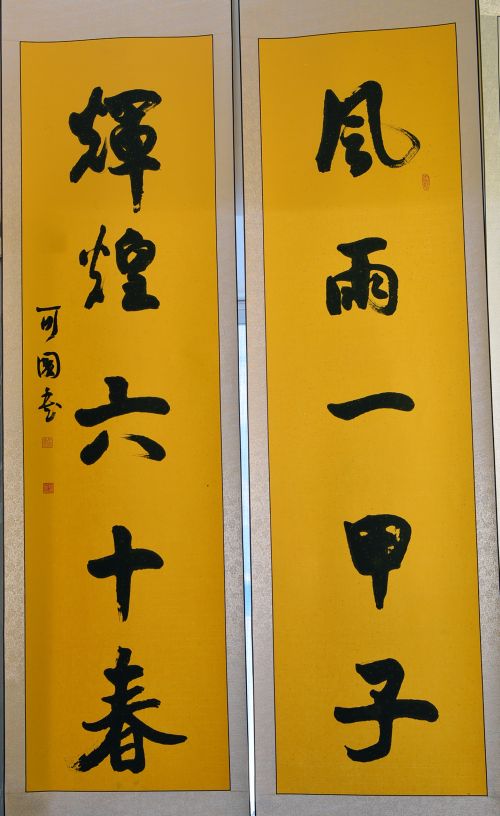 風雨一甲子
輝煌六十春
可國書